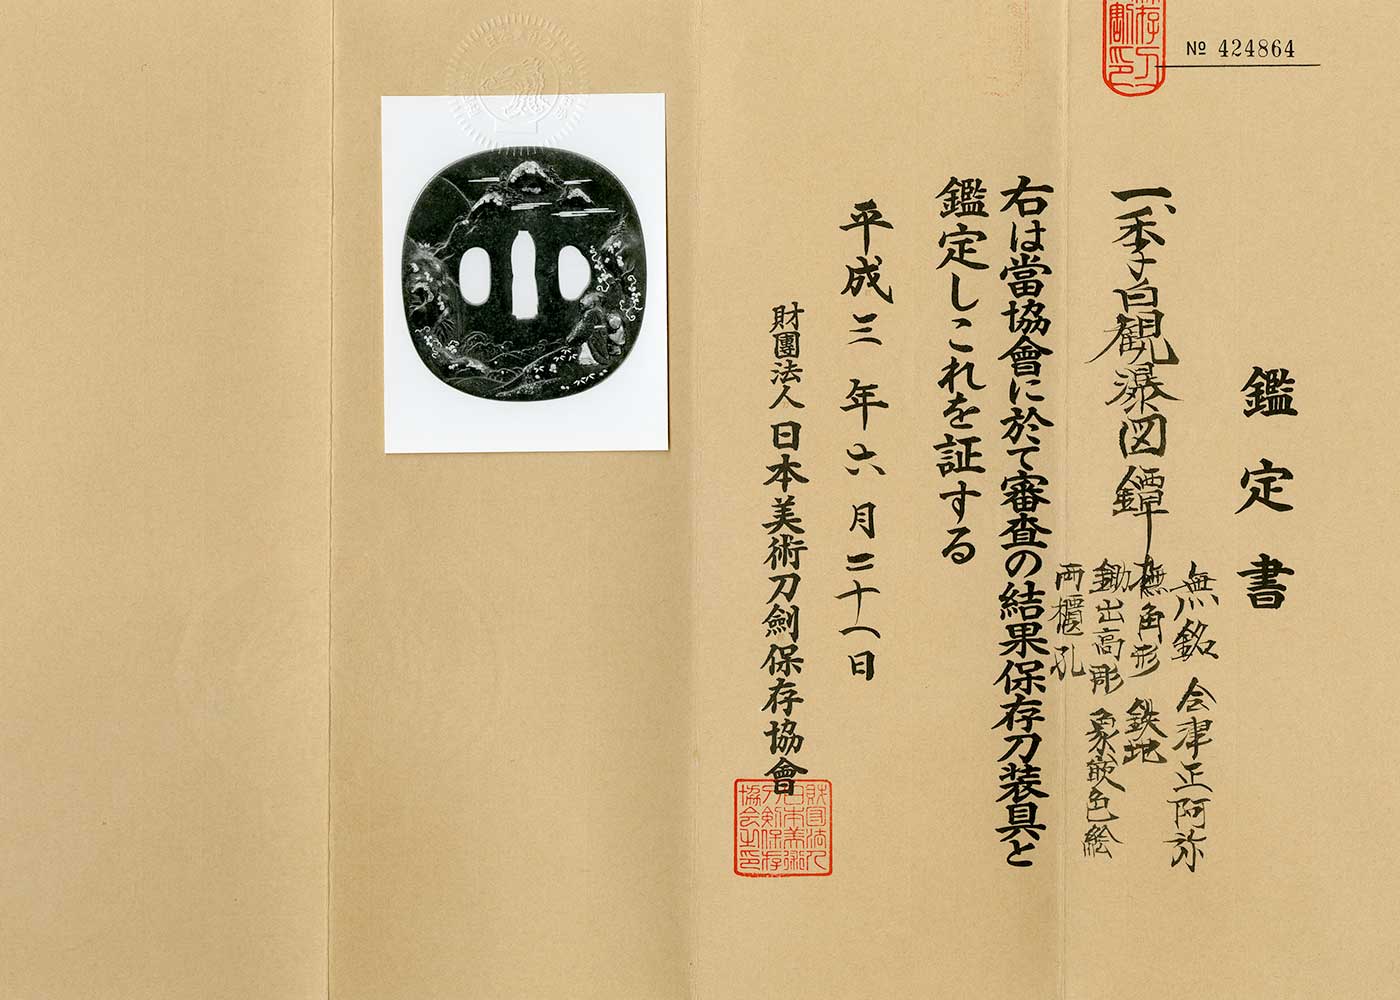 № 424864
鑑定書
一、李白観瀑図鐔
無銘 会津正阿弥
撫角形 鉄地
鋤出高彫 象嵌色絵
両櫃孔
右は當協會に於て審査の結果保存刀装具と
鑑定しこれを証する
平成三年六月二十一日
財團法人日本美術刀劍保存協會
財団法人
日本美術
刀剣保存
協会之印